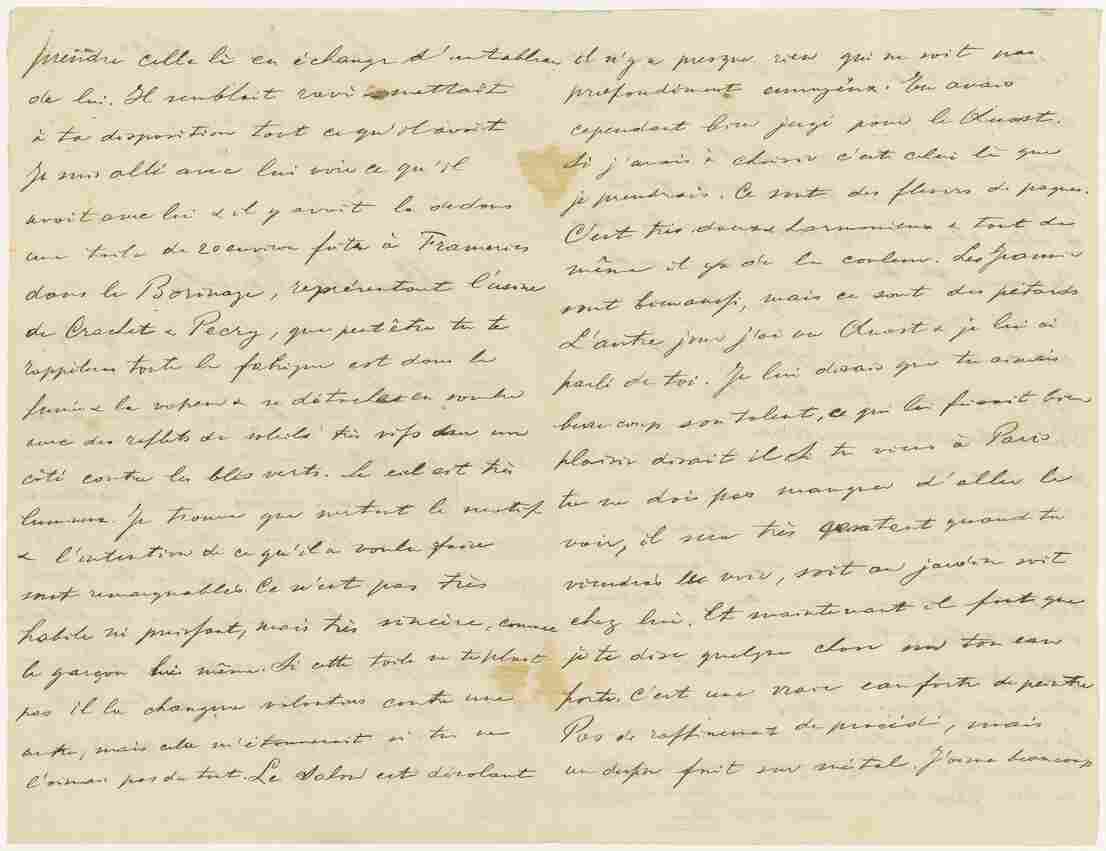 prendre celle là en échange d'un tableau
de lui. Il semblait ravi & mettait
à ta disposition tout ce qu'il avait
Je suis allé avec lui voir ce qu'il
avait avec lui & il y avait là dedans
une toile de 20 environ faite à Frameries
dans le Borinage, représentant l'usine
de Crachet & Pecry, que peut être tu te
rappelleras toute la fabrique est dans la
fumée & la vapeur & se détache en sombre
avec des reflets de soleils très vifs dans un
côté contre les blés verts. Le ciel est très
lumineux. Je trouve que surtout le motif
& l'intention de ce qu'il a voulu faire
sont remarquables. Ce n'est pas très
habile ni puissant, mais très sincère, comme
le garçon lui même. Si cette toile ne te plaît
pas il la changera volontiers contre une
autre, mais cela m'étonnerait si tu ne
l'aimais pas du tout. Le Salon est désolant
il n'y a presque rien qui ne soit pas
profondément ennuyeux. Tu avais
cependant bien jugé pour le Quost.
Si j'avais à choisir c'est celui là que
je prendrais. Ce sont des fleurs de paques.
C'est très doux & harmonieux & tout de
même il y a de la couleur. Les Jeannin
sont bien aussi, mais ce sont des pétards
L'autre jour j'ai vu Quost & je lui ai
parlé de toi. Je lui disais que tu aimais
beaucoup son talent, ce qui lui faisait bien
plaisir disait il Si tu viens à Paris
tu ne dois pas manquer d'aller le
voir, il sera très content quand tu
viendras le voir, soit au jardin soit
chez lui. Et maintenant il faut que
je te dise quelque chose sur ton eau
forte. C'est une vraie eau forte de peintre
Pas de raffinement de procédé, mais
un dessin fait sur métal. J'aime beaucoup